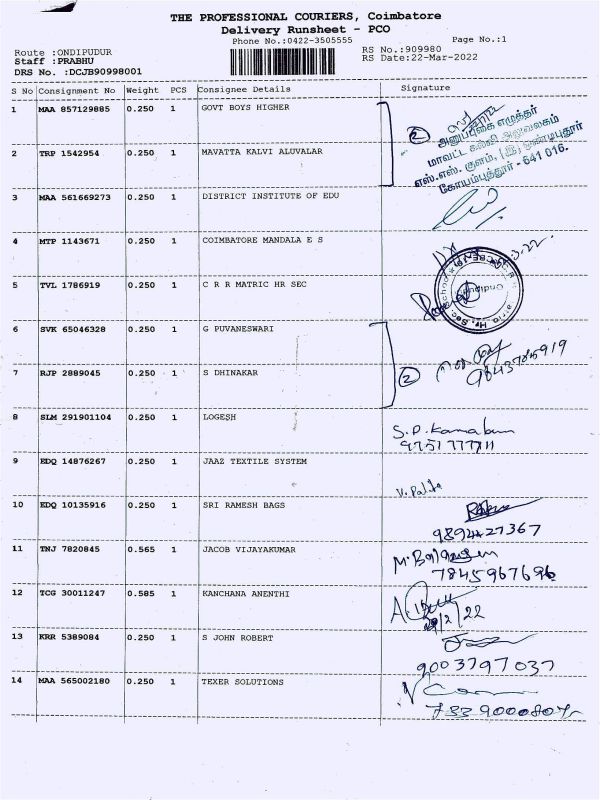 THE PROFESSIONAL COURIERS, Coimbatore
Delivery Runsheet - PCO
Phone No.:0422-3505555
Page No.:1
Route :ONDIPUDUR
RS No.:909980
Staff :PRABHU
RS Date:22-Mar-2022
DRS No. :DCJB90998001
S No Consignment No Weight PCS Consignee Details Signature
1 MAA 857129885 0.250 1 GOVT BOYS HIGHER
2 TRP 1542954 0.250 1 MAVATTA KALVI ALUVALAR
2
மாவட்ட கல்வி அலுவலகம்
எஸ்.எஸ். குளம், (இ) ஒண்டிபுதூர்
கோயம்புத்தூர் - 641 016.
3 MAA 561669273 0.250 1 DISTRICT INSTITUTE OF EDU
4 MTP 1143671 0.250 1 COIMBATORE MANDALA E S
5 TVL 1786919 0.250 1 C R R MATRIC HR SEC
6 SVK 65046328 0.250 1 G PUVANESWARI
7 RJP 2889045 0.250 1 S DHINAKAR
2
8 SLM 291901104 0.250 1 LOGESH
S.P.Kamalam
9751777711
9 EDQ 14876267 0.250 1 JAAZ TEXTILE SYSTEM
10 EDQ 10135916 0.250 1 SRI RAMESH BAGS
9894427367
11 TNJ 7820845 0.565 1 JACOB VIJAYAKUMAR
7845967696
12 TCG 30011247 0.585 1 KANCHANA ANENTHI
13 KRR 5389084 0.250 1 S JOHN ROBERT
9003797037
14 MAA 565002180 0.250 1 TEXER SOLUTIONS